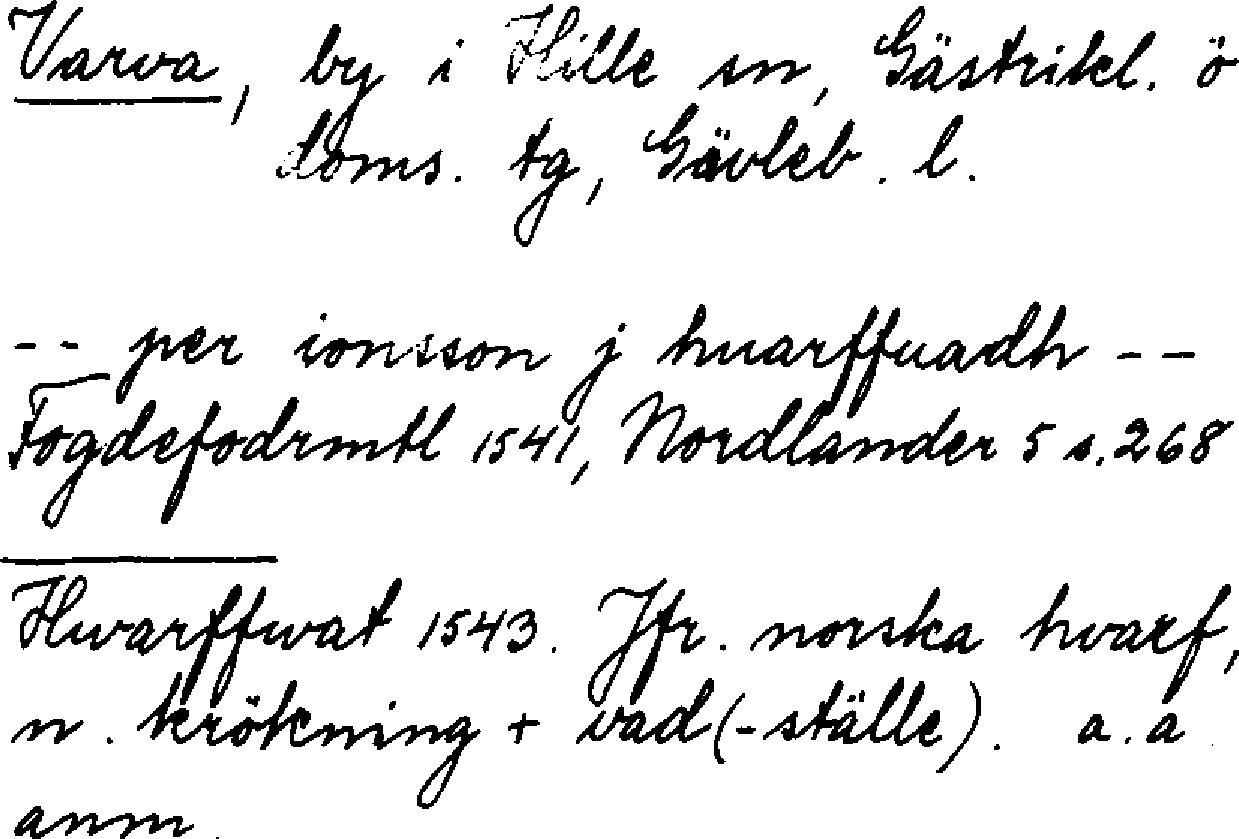 Varva, by i Hille sn, Gästrikl. ö
doms. tg, Gävleb. l.
-- per ionsson j huarffuadh --
Fogdefodrmtl 1541, Nordlander 5 s. 268
Hwarffwat 1543. Jfr. norska hvarf,
n. krökning + vad(-ställe). a.a
anm.